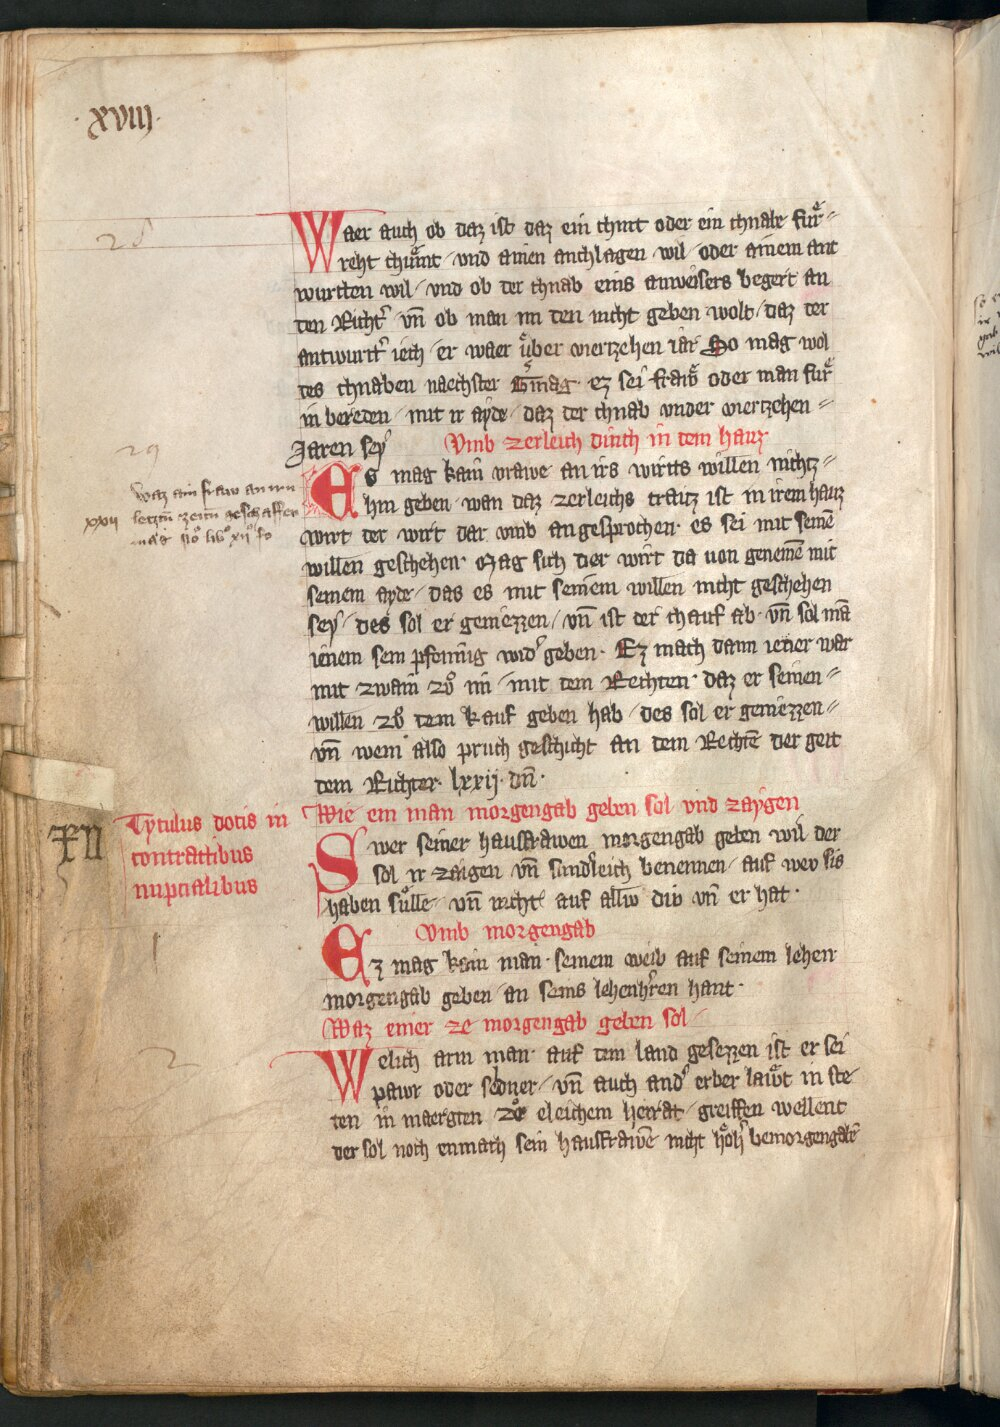 · xviii ·
28
Waer auch ob daz ist daz ein chint oder ein chnabe fuͤr
reht chuͤmt / vnd ainen anchlagen wil / oder ainem ant
wurtten wil / vnd ob der chnab eins anweisers begert an
den Richtˀ vn̄ ob man im den nicht geben wolt / daz der
antwurtˀ iech / er waer uͤber viertzehen iar So mag wol
des chnaben naechster mag · ez sei fraw oder man fuͤr
in bereden / mit ir ayde / daz der chnab vnder viertzehen
Jaren sey
Vmb zerleich dinch in dem hauz
29
Es mag kain vrawe an irs wirtts willen nichtz
hin geben / wan daz zerleichs traitz ist in irem hauz
wirt der wirt dar vmb angesprochen · es sei mit seinē
willen geschehen · Mag sich der wirt da uon genemē mit
seinem ayde / das es mit seinem willen nicht geschehen
sey / des sol er geniezzen / vn̄ ist der chauf ab · vn̄ sol mā
ienem sein pfenning widˀ geben · Ez mach dann iener war
mit zwain zuͦ im / mit dem Rechten · daz er seinen
willen zuͦ dem kauf geben hab / des sol er geniezzen
vn̄ wem also pruch geschicht an dem Rechtē der geit
dem Richter · lxxij · dn̄ ·
waz ain fraw an irn
xxii letztn̄ zeitn̄ geschaffen
mag
Wie ein man morgengab geben sol vnd zaygen
Tytulus dotis in
contractibus
nupcialibus
Swer seiner hausfrawen morgengab geben wil der
sol ir zaigen vn̄ sundˀleich benennen / auf wev sis
haben suͤlle / vn̄ nicht auf allw div vn̄ er hat ·
Vmb morgengab
1
Ez mag kain man · seinem weib auf seinem lehen
morgengab geben / an seins lehenhˀren hant ·
Waz einer ze morgengab geben sol
2
Welich arm man auf dem land gesezzen ist er sei
pawr oder seldner / vn̄ auch andˀ erber laiͤwt in ste
ten in maergten zuͦ eleichem heirat / greiffen wellent
der sol noch enmach sein hausfrawē nicht hoͤhˀ bemorgengabē